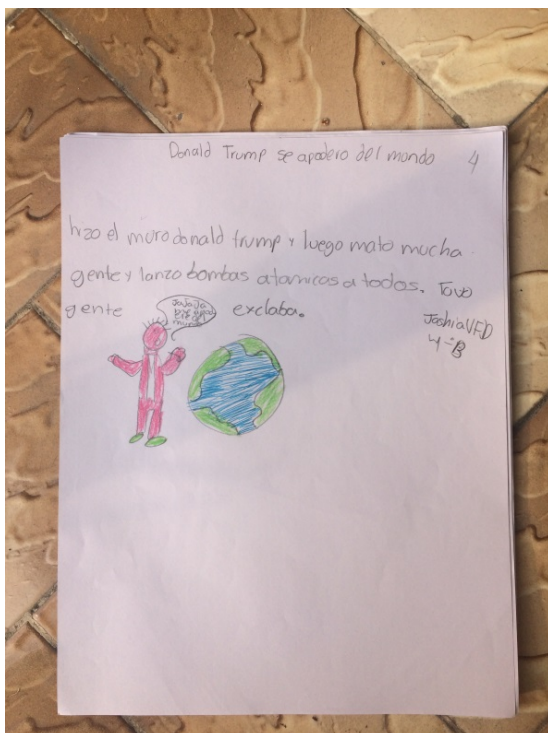 Donald Trump se apodero del mundo 4
hizo el muro donald trump y luego mato mucha
gente y lanzo bombas atomicas a todos. Tuvo
gente exclaba.
JaJaJa
mundo
JashiaVFD
4-B